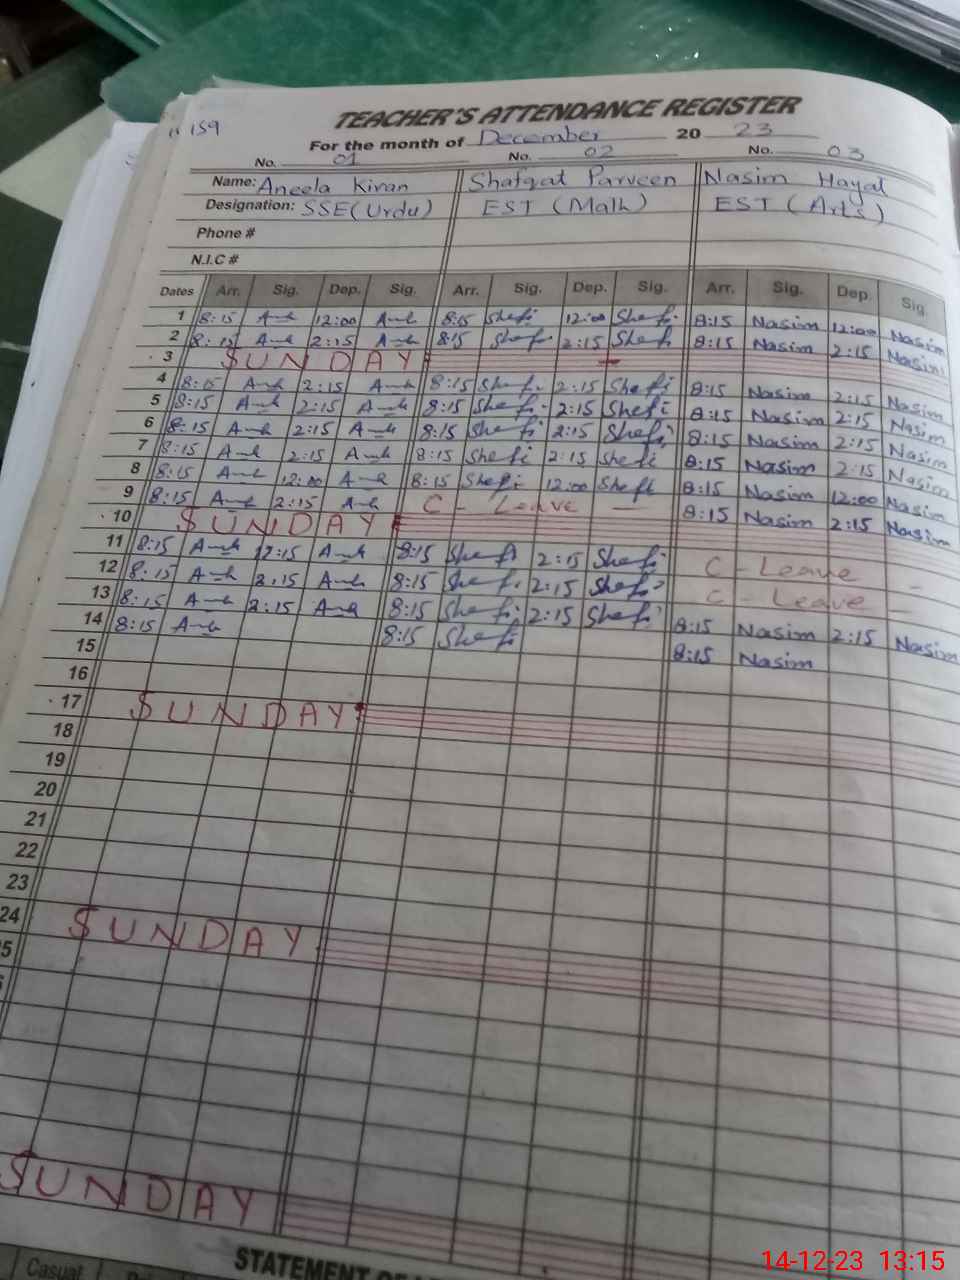 159
TEACHER'S ATTENDANCE REGISTER
For the month of December 20 23
No. 01 No. 02 No. 03
Name: Aneela Kiran Shafqat Parveen Nasim Hayat
Designation: SSE (Urdu) EST (Math) EST (Arts)
Phone #
N.I.C #
Dates Arr. Sig. Dep. Sig. Arr. Sig. Dep. Sig. Arr. Sig. Dep. Sig.
1 8:15 12:00 8:15 Shefi 12:00 Shefi 8:15 Nasim 12:00 Nasim
2 8:15 2:15 8:15 Shefi 2:15 Shefi 8:15 Nasim 2:15 Nasim
3 SUNDAY
4 8:15 2:15 8:15 Shefi 2:15 Shefi 8:15 Nasim 2:15 Nasim
5 8:15 2:15 8:15 Shefi 2:15 Shefi 8:15 Nasim 2:15 Nasim
6 8:15 2:15 8:15 Shefi 2:15 Shefi 8:15 Nasim 2:15 Nasim
7 8:15 2:15 8:15 Shefi 2:15 Shefi 8:15 Nasim 2:15 Nasim
8 8:15 12:00 8:15 Shefi 12:00 Shefi 8:15 Nasim 12:00 Nasim
9 8:15 2:15 C - Leave - 8:15 Nasim 2:15 Nasim
10 SUNDAY
11 8:15 8:15 Shefi 2:15 Shefi C - Leave -
12 8:15 2:15 8:15 Shefi 2:15 Shefi C - Leave -
13 8:15 2:15 8:15 Shefi 2:15 Shefi 8:15 Nasim 2:15 Nasim
14 8:15 8:15 Shefi 8:15 Nasim
15
16
17 SUNDAY
18
19
20
21
22
23
24 SUNDAY
5
SUNDAY
STATEMENT OF
Casual
14-12-23 13:15